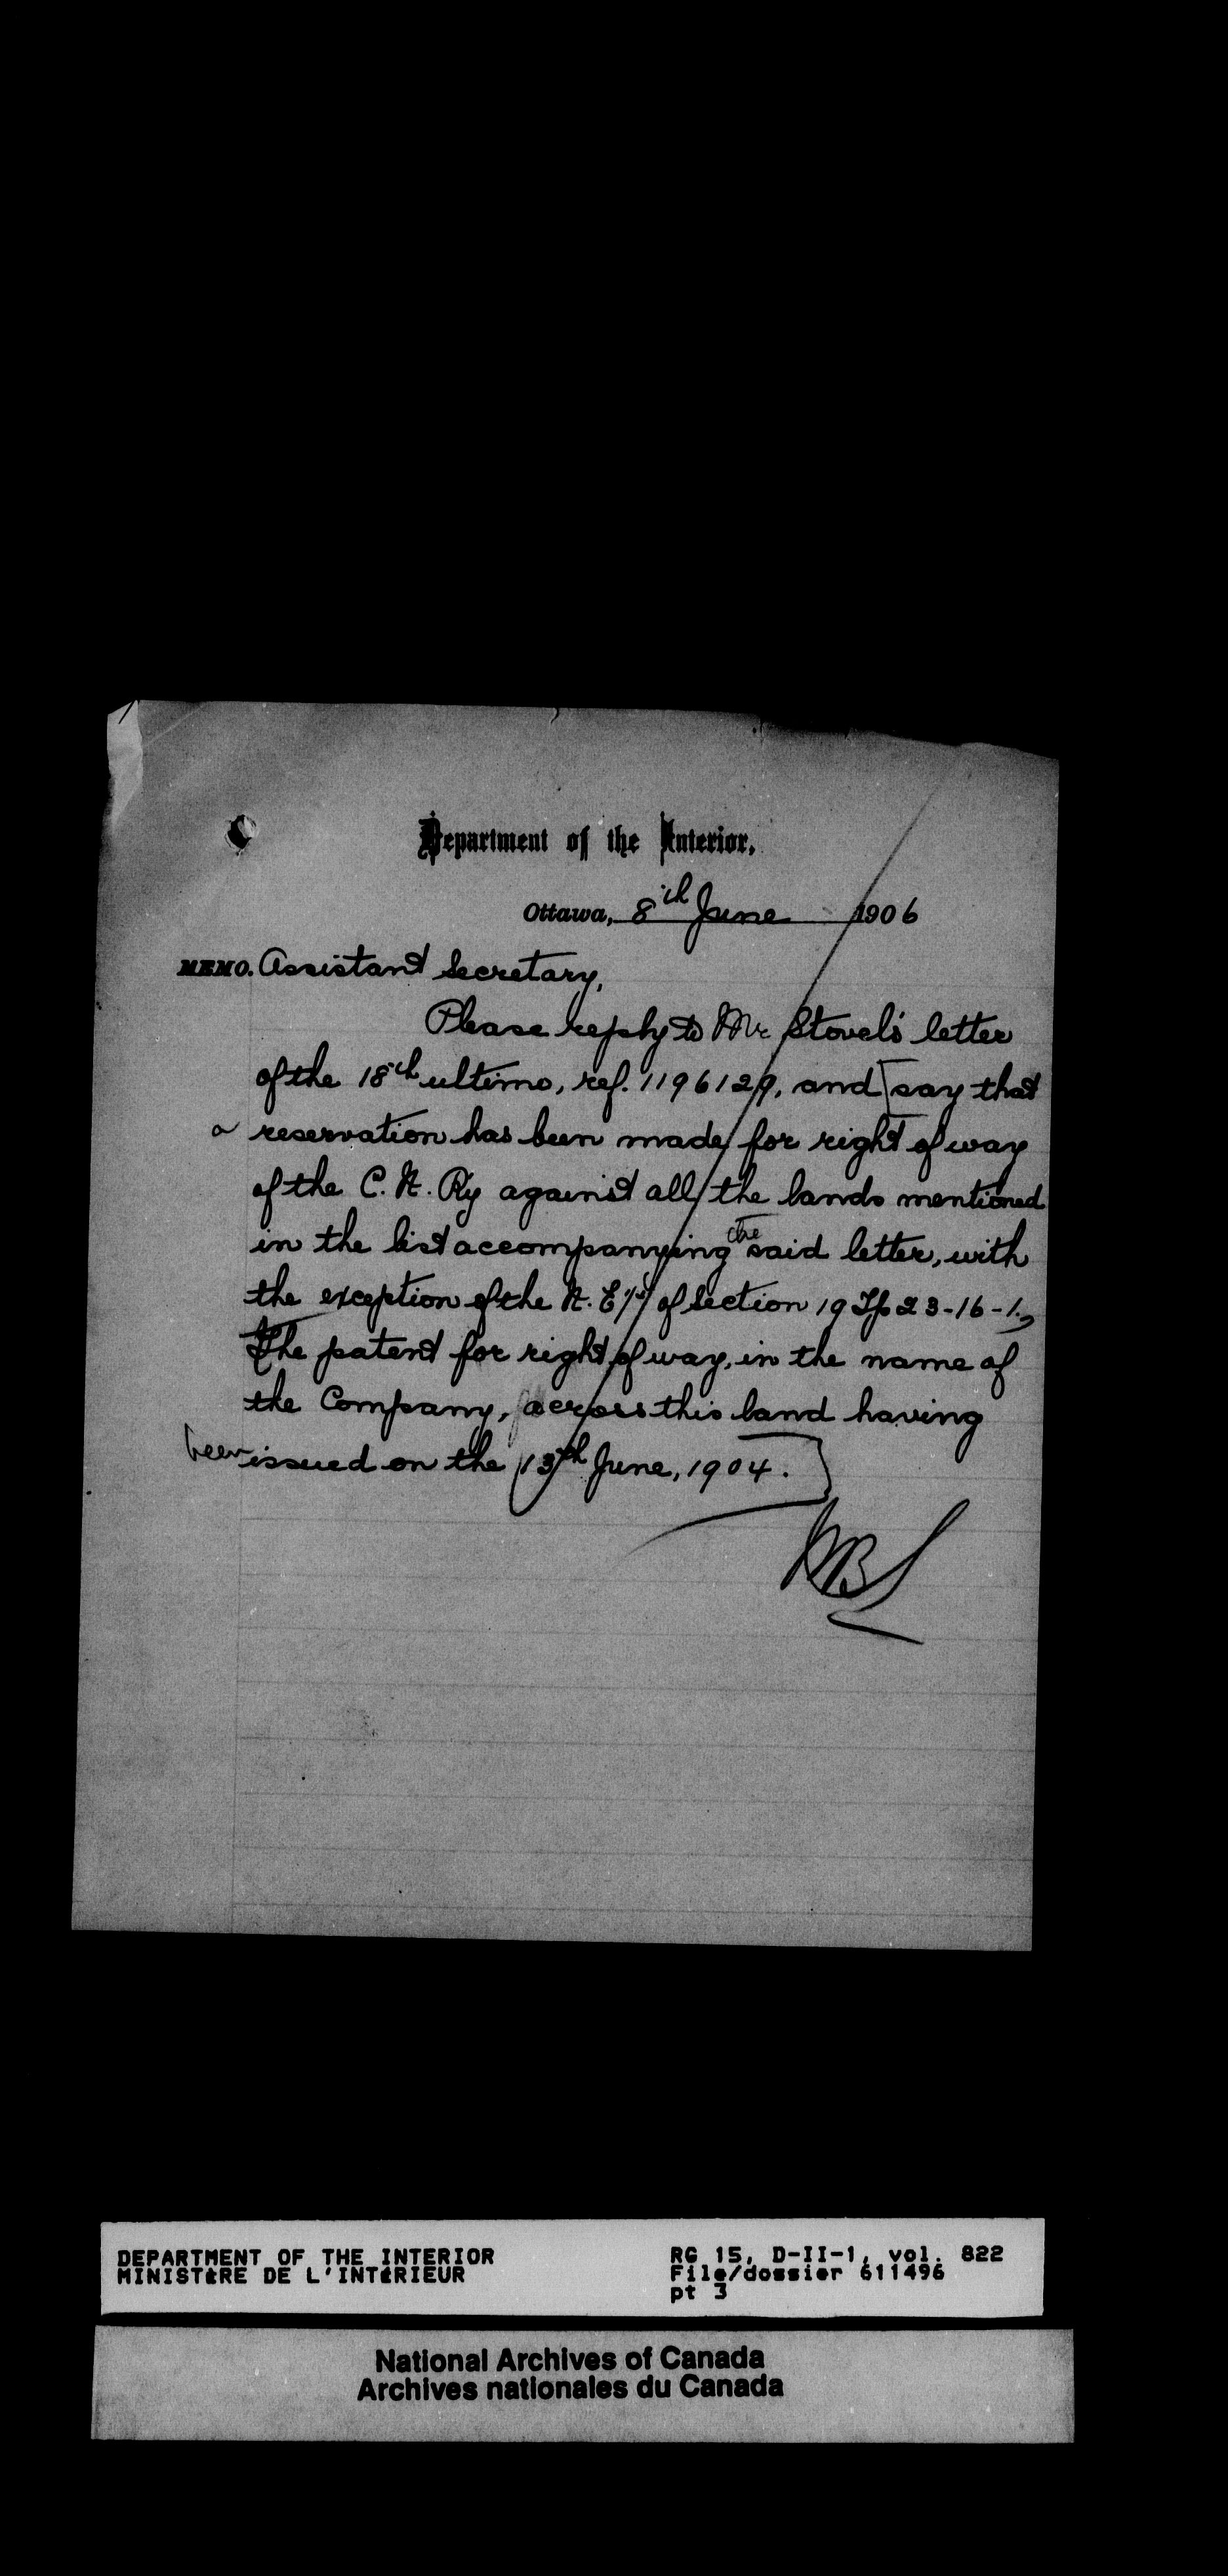 Department of the Interior,
Ottawa, 8th June 1906
MEMO. Assistant Secretary,
Please reply to Mr Stovel's letter
of the 18th ultimo, ref. 1196129, and [say that
a reservation has been made for right of way
of the C. N. Ry against all the lands mentioned
in the list accompanying the said letter, with
the exception of the N. E. 1/4 of Section 19 Tp 23-16-1.,
The patent for right of way, in the name of
the Company, across this land having
been issued on the 13th June, 1904.]
DEPARTMENT OF THE INTERIOR
MINISTÈRE DE L'INTÉRIEUR
RG 15, D-II-1, vol. 822
File/dossier 611496
pt 3
National Archives of Canada
Archives nationales du Canada